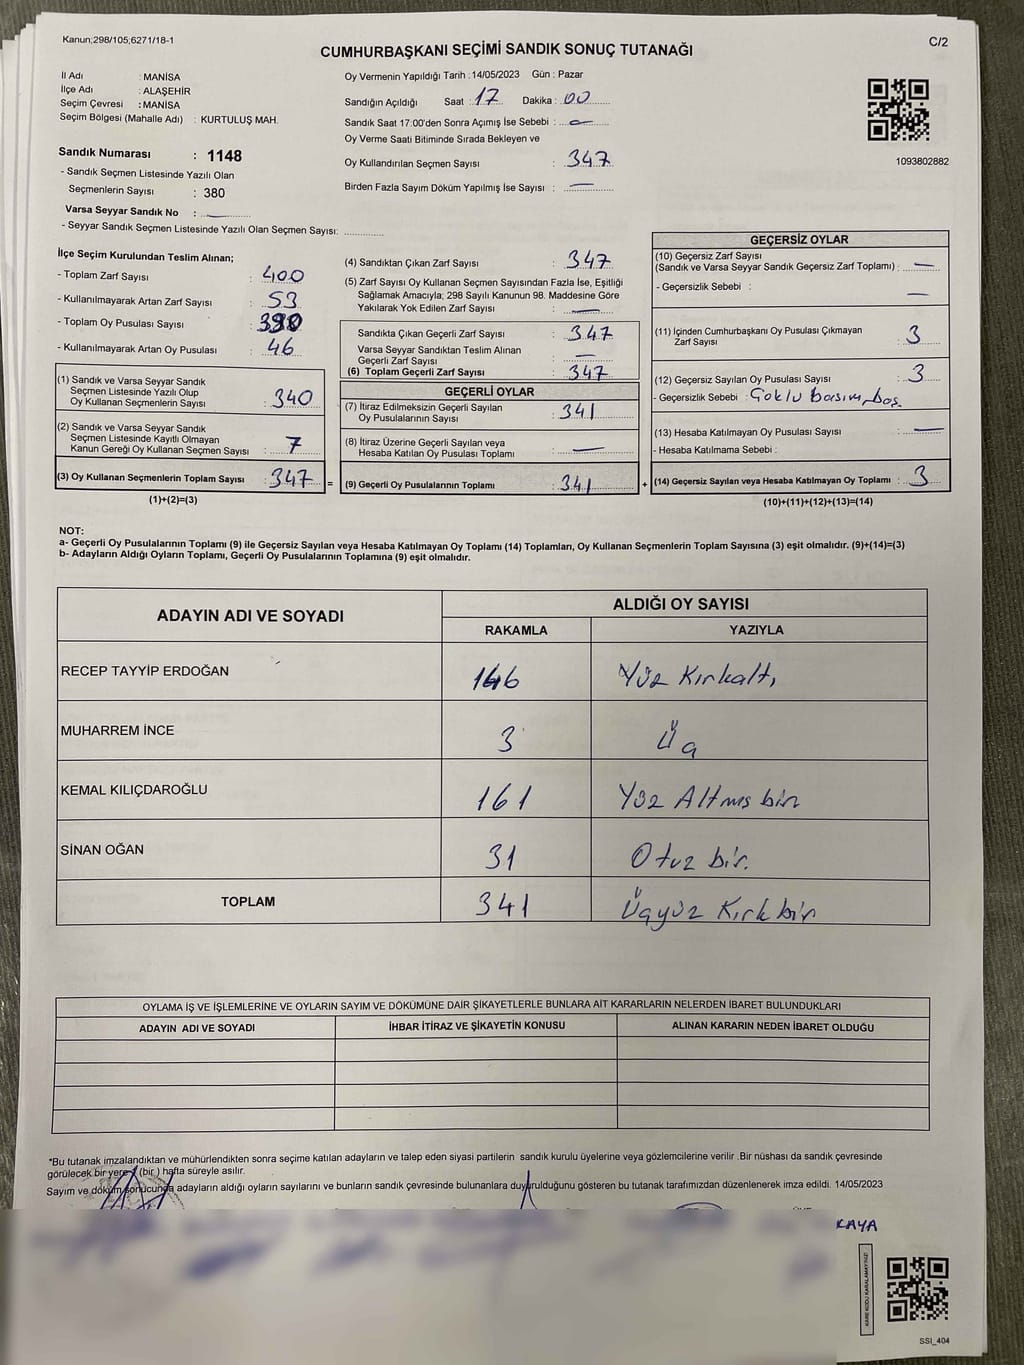 Kanun;298/105;6271/18-1
C/2
CUMHURBAŞKANI SEÇİMİ SANDIK SONUÇ TUTANAĞI
İl Adı : MANİSA
İlçe Adı : ALAŞEHİR
Seçim Çevresi : MANİSA
Seçim Bölgesi (Mahalle Adı) : KURTULUŞ MAH.
Sandık Numarası : 1148
- Sandık Seçmen Listesinde Yazılı Olan
Seçmenlerin Sayısı : 380
Varsa Seyyar Sandık No :
- Seyyar Sandık Seçmen Listesinde Yazılı Olan Seçmen Sayısı:
Oy Vermenin Yapıldığı Tarih :14/05/2023 Gün : Pazar
Sandığın Açıldığı Saat : 17 Dakika : 00
Sandık Saat 17:00'den Sonra Açımış İse Sebebi :
Oy Verme Saati Bitiminde Sırada Bekleyen ve
Oy Kullandırılan Seçmen Sayısı : 347
Birden Fazla Sayım Döküm Yapılmış İse Sayısı : —
1093802882
İlçe Seçim Kurulundan Teslim Alınan;
- Toplam Zarf Sayısı : 400
- Kullanılmayarak Artan Zarf Sayısı : 53
- Toplam Oy Pusulası Sayısı :
- Kullanılmayarak Artan Oy Pusulası : 46
(1) Sandık ve Varsa Seyyar Sandık
Seçmen Listesinde Yazılı Olup
Oy Kullanan Seçmenlerin Sayısı : 340
(2) Sandık ve Varsa Seyyar Sandık
Seçmen Listesinde Kayıtlı Olmayan
Kanun Gereği Oy Kullanan Seçmen Sayısı : 7
(3) Oy Kullanan Seçmenlerin Toplam Sayısı : 347
(1)+(2)=(3)
=
(4) Sandıktan Çıkan Zarf Sayısı : 347
(5) Zarf Sayısı Oy Kullanan Seçmen Sayısından Fazla İse, Eşitliği
Sağlamak Amacıyla; 298 Sayılı Kanunun 98. Maddesine Göre
Yakılarak Yok Edilen Zarf Sayısı : —
Sandıkta Çıkan Geçerli Zarf Sayısı : 347
Varsa Seyyar Sandıktan Teslim Alınan
Geçerli Zarf Sayısı : —
(6) Toplam Geçerli Zarf Sayısı : 347
GEÇERLİ OYLAR
(7) İtiraz Edilmeksizin Geçerli Sayılan
Oy Pusulalarının Sayısı : 341
(8) İtiraz Üzerine Geçerli Sayılan veya
Hesaba Katılan Oy Pusulası Toplamı : —
(9) Geçerli Oy Pusulalarının Toplamı : 341
+
GEÇERSİZ OYLAR
(10) Geçersiz Zarf Sayısı
(Sandık ve Varsa Seyyar Sandık Geçersiz Zarf Toplamı) : —
- Geçersizlik Sebebi : —
(11) İçinden Cumhurbaşkanı Oy Pusulası Çıkmayan
Zarf Sayısı : 3
(12) Geçersiz Sayılan Oy Pusulası Sayısı : 3
- Geçersizlik Sebebi : Çoklu basım, boş
(13) Hesaba Katılmayan Oy Pusulası Sayısı : —
- Hesaba Katılmama Sebebi :
(14) Geçersiz Sayılan veya Hesaba Katılmayan Oy Toplamı : 3
(10)+(11)+(12)+(13)=(14)
NOT:
a- Geçerli Oy Pusulalarının Toplamı (9) ile Geçersiz Sayılan veya Hesaba Katılmayan Oy Toplamı (14) Toplamları, Oy Kullanan Seçmenlerin Toplam Sayısına (3) eşit olmalıdır. (9)+(14)=(3)
b- Adayların Aldığı Oyların Toplamı, Geçerli Oy Pusulalarının Toplamına (9) eşit olmalıdır.
ADAYIN ADI VE SOYADI
ALDIĞI OY SAYISI
RAKAMLA YAZIYLA
RECEP TAYYİP ERDOĞAN 146 Yüz Kırkaltı
MUHARREM İNCE 3 Üç
KEMAL KILIÇDAROĞLU 161 Yüz Altmış bir
SİNAN OĞAN 31 Otuz bir.
TOPLAM 341 Üçyüz Kırk bir
OYLAMA İŞ VE İŞLEMLERİNE VE OYLARIN SAYIM VE DÖKÜMÜNE DAİR ŞİKAYETLERLE BUNLARA AİT KARARLARIN NELERDEN İBARET BULUNDUKLARI
ADAYIN ADI VE SOYADI İHBAR İTİRAZ VE ŞİKAYETİN KONUSU ALINAN KARARIN NEDEN İBARET OLDUĞU
*Bu tutanak imzalandıktan ve mühürlendikten sonra seçime katılan adayların ve talep eden siyasi partilerin sandık kurulu üyelerine veya gözlemcilerine verilir .Bir nüshası da sandık çevresinde
görülecek bir yere 1 (bir ) hafta süreyle asılır.
Sayım ve döküm sonucunda adayların aldığı oyların sayılarını ve bunların sandık çevresinde bulunanlara duyurulduğunu gösteren bu tutanak tarafımızdan düzenlenerek imza edildi. 14/05/2023
KAYA
KARE KODU KARALAMAYINIZ!
SSI_404